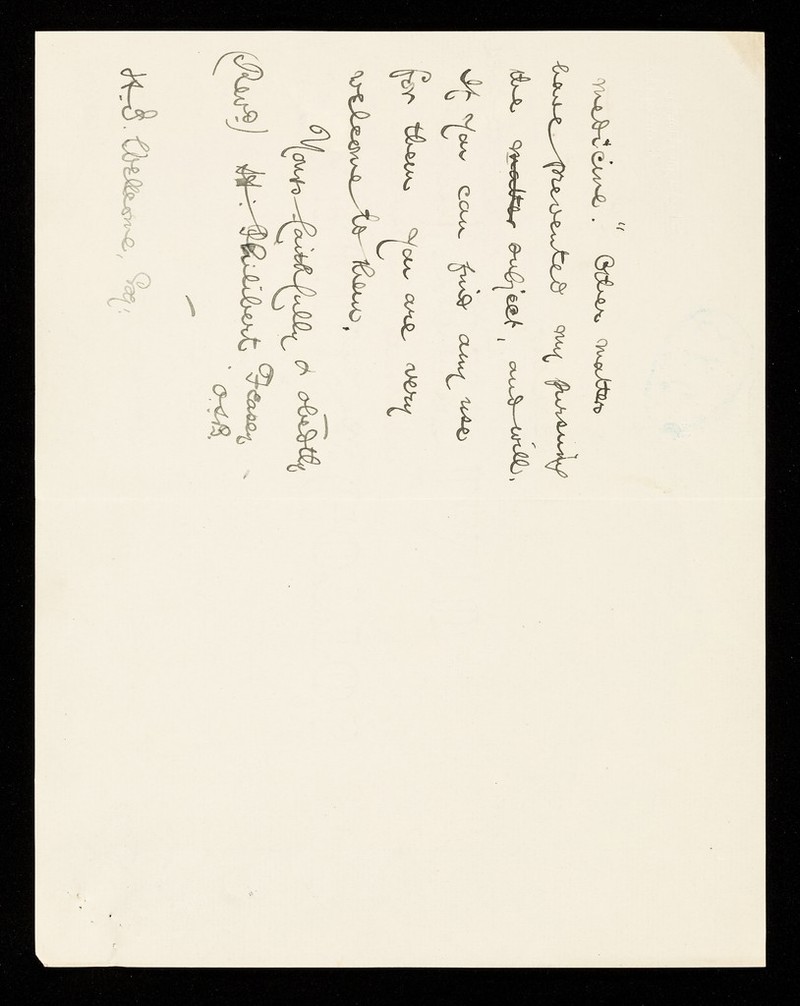 medicine." Other matters
have prevented my pursuing
the matter subject, and will.
If you can find any use
for them you are very
welcome to them.
Yours faithfully & obedtly
(Revd) H. Philibert Feasey
O.S.B.
H.S. Wellcome, Esq.